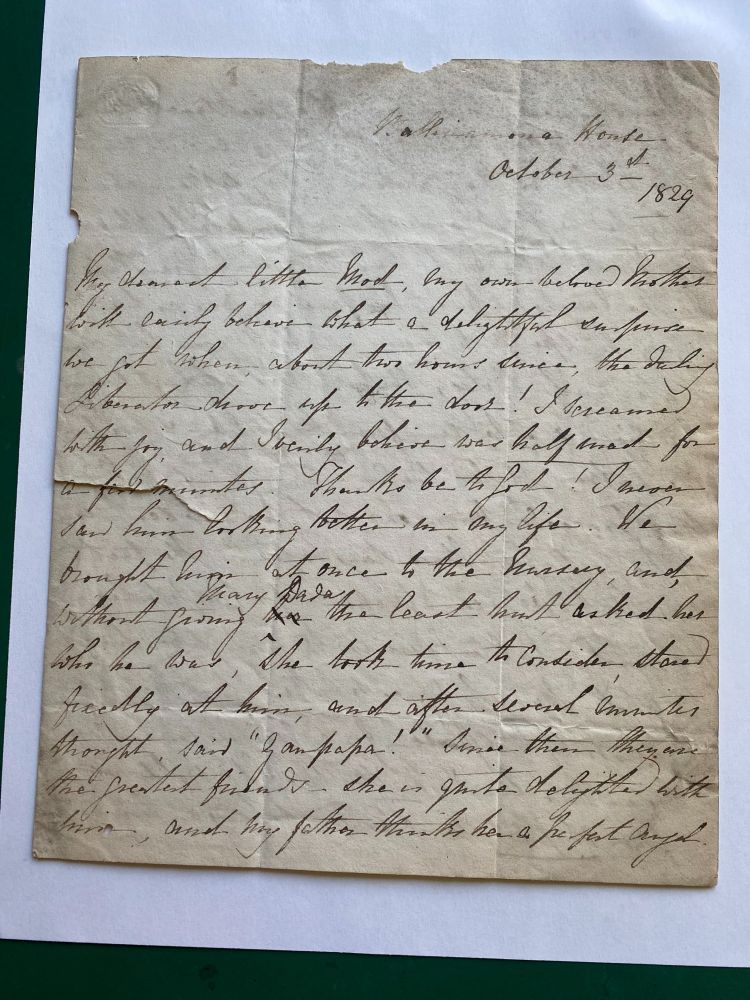 Ballinamona House
October 3rd
1829
My dearest little Mod, my own beloved Mother
will easily believe what a delightful surprise
we got when, about two hours since, the darling
Liberator drove up to the door! I screamed
with joy, and I verily believe was half mad for
a few minutes. Thanks be to God! I never
saw him looking better in my life. We
brought him at once to the Nursery, and,
without giving Mary Dada the least hint asked her
who he was, she took time to consider, stared
fixedly at him, and after several minutes
thought, said "Yanpapa!" Since then they are
the greatest friends - she is quite delighted with
him, and my father thinks her a perfect angel.